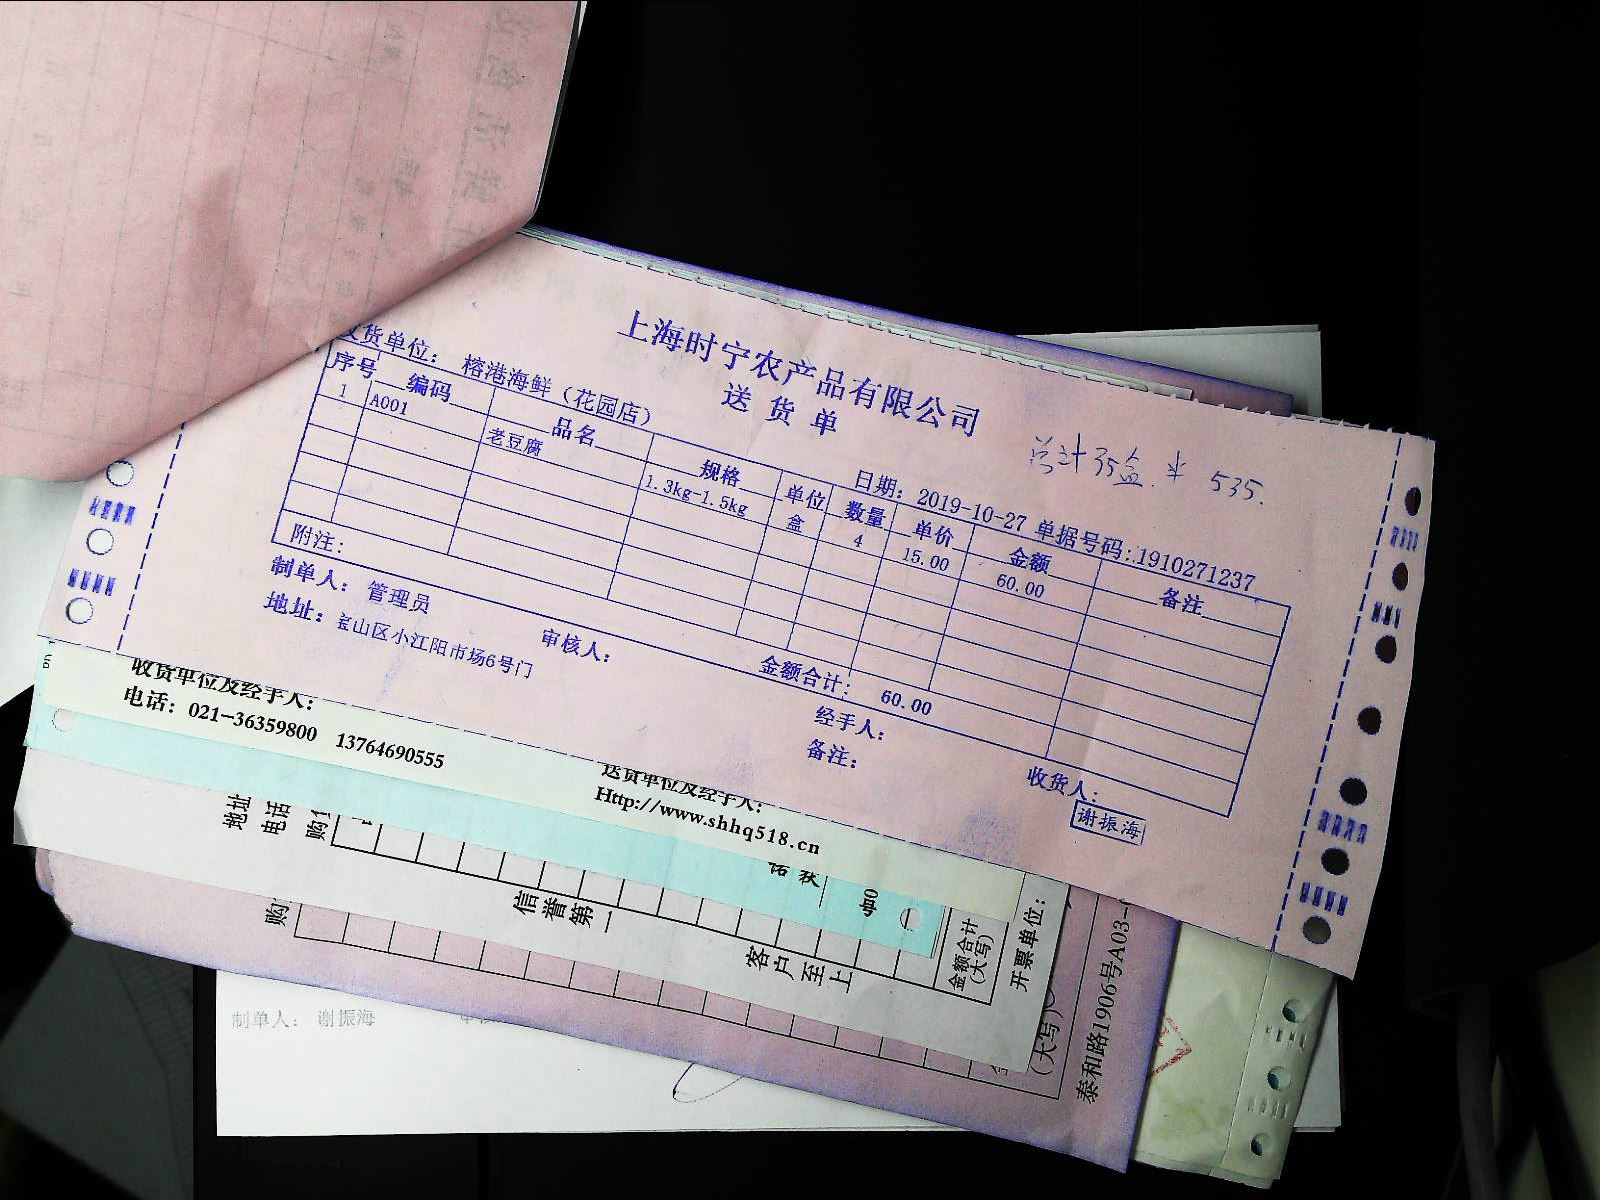 上海时宁农产品有限公司
送货单
总计35盒 ¥ 535.
收货单位: 榕港海鲜（花园店）
日期: 2019-10-27 单据号码:.1910271237
序号 编码 品名 规格 单位 数量 单价 金额 备注
1 A001 老豆腐 1.3kg-1.5kg 盒 4 15.00 60.00
附注:
金额合计: 60.00
制单人: 管理员 审核人: 经手人: 收货人:
地址: 宝山区小江阳市场6号门 备注: 谢振海
收货单位及经手人: 送货单位及经手人:
电话: 021-36359800 13764690555 Http://www.shhq518.cn
地址
电话
购
信誉第一
客户至上
金额合计
(大写)
开票单位:
购
(大写)
泰和路1906号A03-
制单人: 谢振海